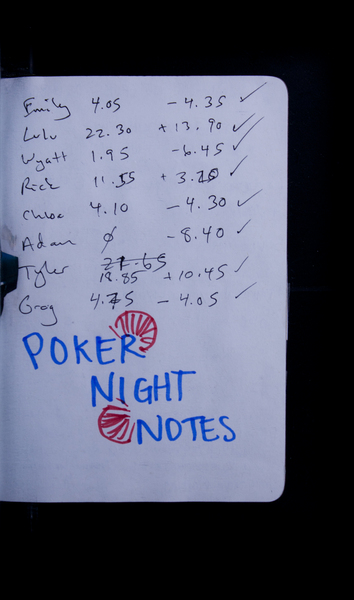 Emily 4.05 - 4.35 ✓
Lulu 22.30 + 13.90 ✓
Wyatt 1.95 - 6.45 ✓
Rick 11.55 + 3.15 ✓
Chloe 4.10 - 4.30 ✓
Adam ∅ - 8.40 ✓
Tyler 27.65
18.85 + 10.45 ✓
Greg 4.35 - 4.05 ✓
POKER
NIGHT
NOTES